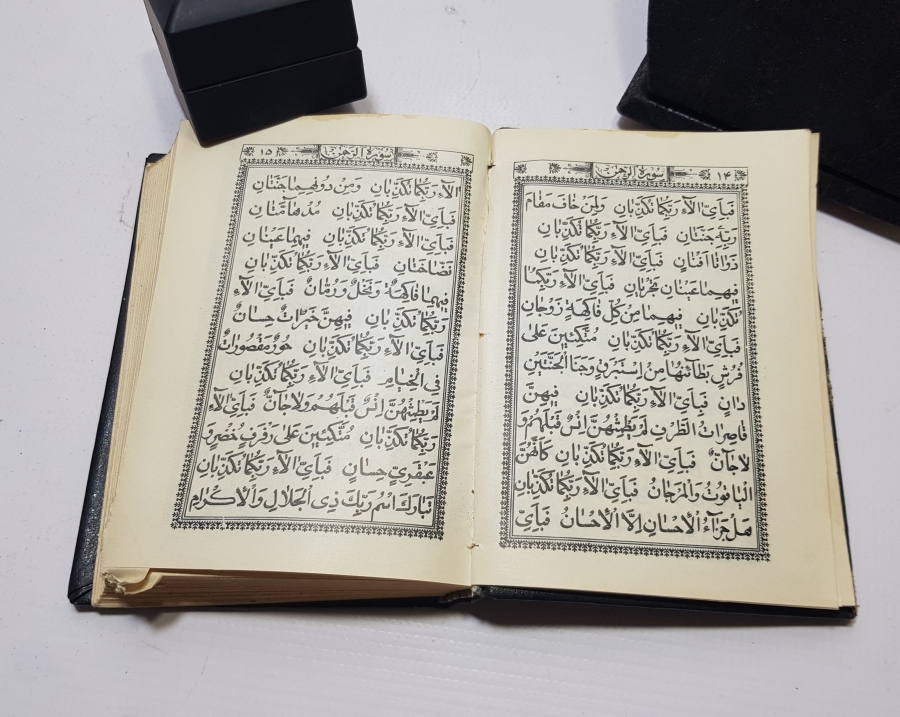 ۱۴ سورة الرحمن
فَبِأَيِّ الَاءِ رَبِّكُمَا تُكَذِّبَانِ وَلِمَنْ خَافَ مَقَامَ
رَبِّهِ جَنَّتَانِ فَبِأَيِّ الَاءِ رَبِّكُمَا تُكَذِّبَانِ
ذَوَاتَا اَفْنَانٍ فَبِأَيِّ الَاءِ رَبِّكُمَا تُكَذِّبَانِ
فِيهِمَا عَيْنَانِ تَجْرِيَانِ فَبِأَيِّ الَاءِ رَبِّكُمَا
تُكَذِّبَانِ فِيهِمَا مِنْ كُلِّ فَاكِهَةٍ زَوْجَانِ
فَبِأَيِّ الَاءِ رَبِّكُمَا تُكَذِّبَانِ مُتَّكِئِينَ عَلَى
فُرُشٍ بَطَائِنُهَا مِنْ اِسْتَبْرَقٍ وَجَنَا الْجَنَّتَيْنِ
دَانٍ فَبِأَيِّ الَاءِ رَبِّكُمَا تُكَذِّبَانِ فِيهِنَّ
قَاصِرَاتُ الطَّرْفِ لَمْ يَطْمِثْهُنَّ اِنْسٌ قَبْلَهُمْ وَ
لَا جَانٌّ فَبِأَيِّ الَاءِ رَبِّكُمَا تُكَذِّبَانِ كَاَنَّهُنَّ
الْيَاقُوتُ وَالْمَرْجَانُ فَبِأَيِّ الَاءِ رَبِّكُمَا تُكَذِّبَانِ
هَلْ جَزَاءُ الْاِحْسَانِ اِلَّا الْاِحْسَانُ فَبِأَيِّ
سورة الرحمن ۱۵
الَاءِ رَبِّكُمَا تُكَذِّبَانِ وَمِنْ دُونِهِمَا جَنَّتَانِ
فَبِأَيِّ الَاءِ رَبِّكُمَا تُكَذِّبَانِ مُدْهَامَّتَانِ
فَبِأَيِّ الَاءِ رَبِّكُمَا تُكَذِّبَانِ فِيهِمَا عَيْنَانِ
نَضَّاخَتَانِ فَبِأَيِّ الَاءِ رَبِّكُمَا تُكَذِّبَانِ
فِيهِمَا فَاكِهَةٌ وَنَخْلٌ وَرُمَّانٌ فَبِأَيِّ الَاءِ
رَبِّكُمَا تُكَذِّبَانِ فِيهِنَّ خَيْرَاتٌ حِسَانٌ
فَبِأَيِّ الَاءِ رَبِّكُمَا تُكَذِّبَانِ حُورٌ مَقْصُورَاتٌ
فِي الْخِيَامِ فَبِأَيِّ الَاءِ رَبِّكُمَا تُكَذِّبَانِ
لَمْ يَطْمِثْهُنَّ اِنْسٌ قَبْلَهُمْ وَلَا جَانٌّ فَبِأَيِّ الَاءِ
رَبِّكُمَا تُكَذِّبَانِ مُتَّكِئِينَ عَلَى رَفْرَفٍ خُضْرٍ وَ
عَبْقَرِيٍّ حِسَانٍ فَبِأَيِّ الَاءِ رَبِّكُمَا تُكَذِّبَانِ
تَبَارَكَ اسْمُ رَبِّكَ ذِي الْجَلَالِ وَالْاِكْرَامِ